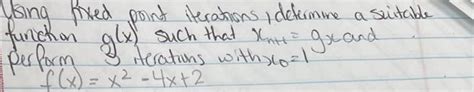 Using fixed point iterations, determine a suitable
function g(x) such that xₙ₊₁ = gx and
perform 3 iterations with x₀=1
f(x) = x² -4x+2